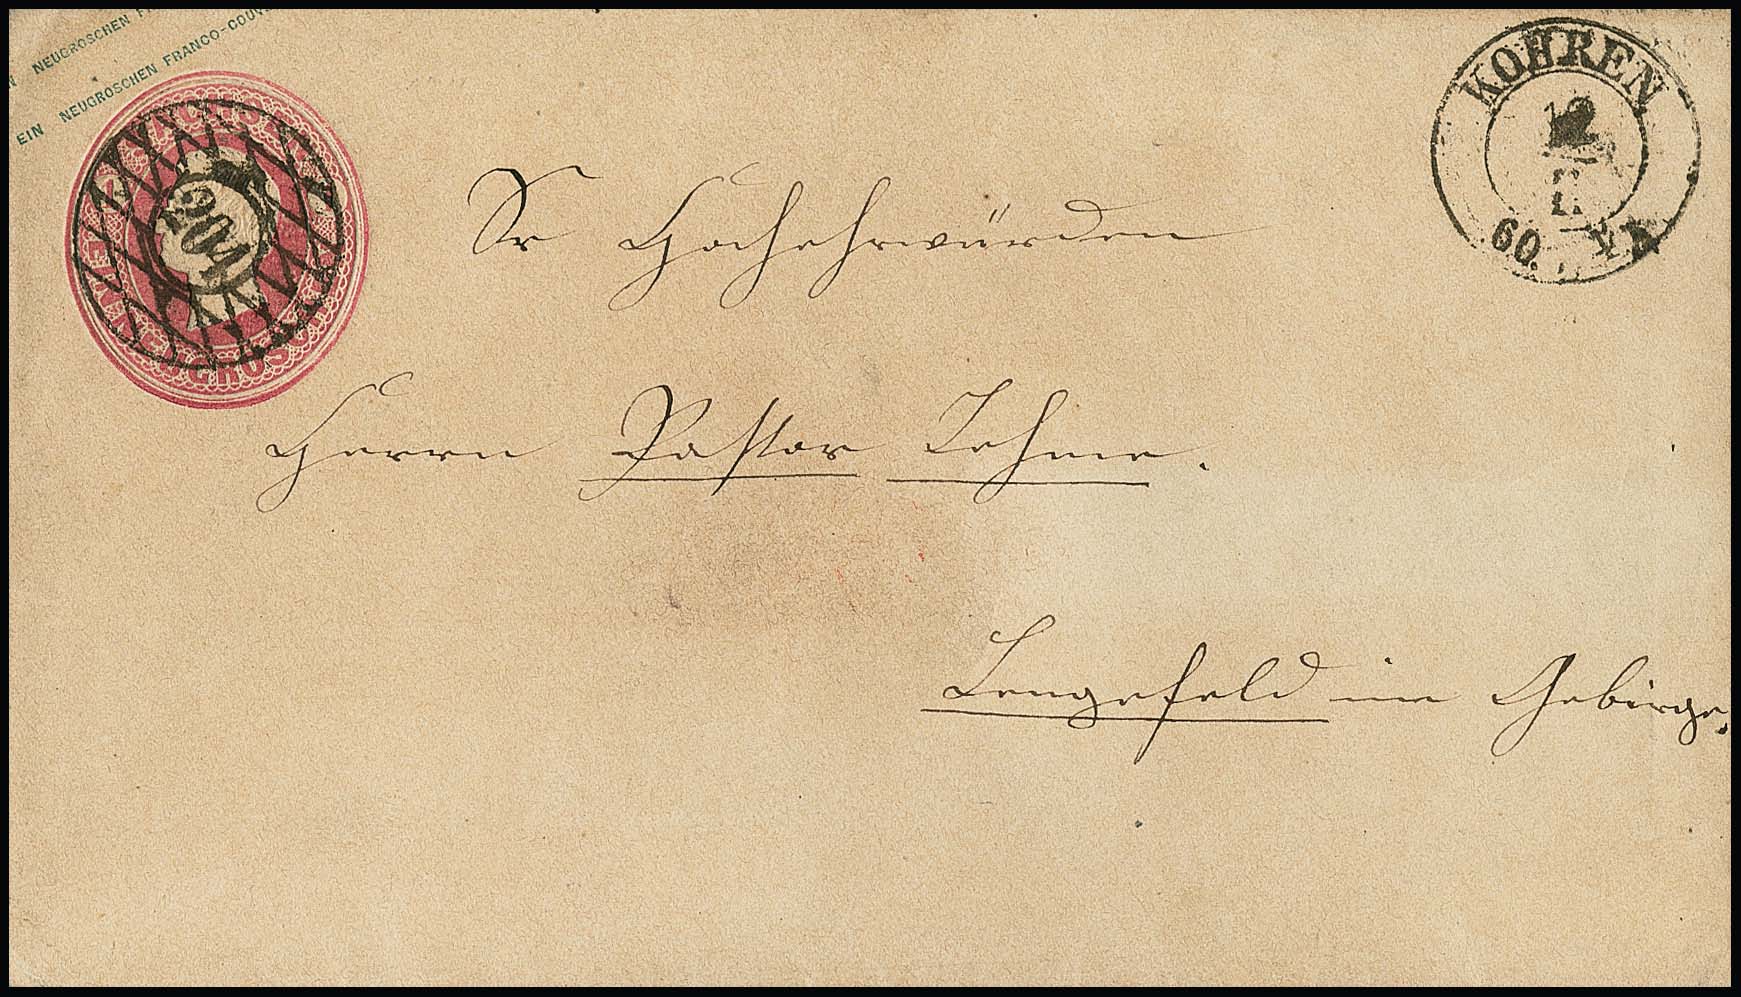 NEUGROSCHEN
EIN NEUGROSCHEN FRANCO-COUV
204
KOHREN
12
60.
Sr Hochehrwürden
Herrn Pastor Lehme.
Lengefeld im Gebirge.